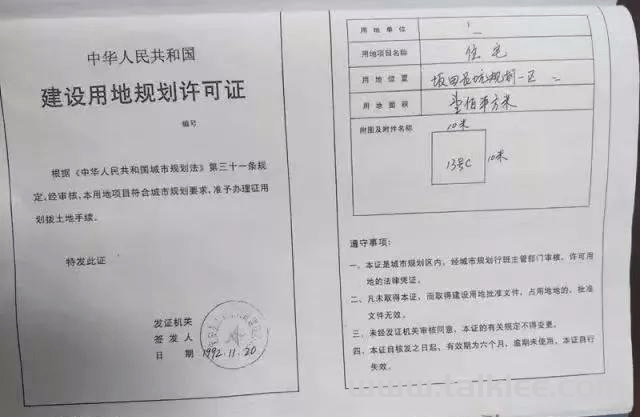 中华人民共和国
建设用地规划许可证
编号
根据《中华人民共和国城市规划法》第三十一条规
定,经审核,本用地项目符合城市规划要求,准予办理征用
划拨土地手续。
特发此证
发证机关
签发人
日期 1992.11.20
用地单位
用地项目名称 住宅
用地位置 坂田吉坑规划一区
用地面积 壹佰平方米
附图及附件名称
10米
13号C 10米
遵守事项:
一、本证是城市规划区内,经城市规划行班主管部门审核,许可用
地的法律凭证。
二、凡未取得本证,而取得建设用地批准文件,占用地地的,批准
文件无效。
三、未经发证机关审核同意,本证的有关规定不得变更。
四、本证自核发之日起,有效期为六个月,逾期未使用,本证自行
失效。
www.talklee.com